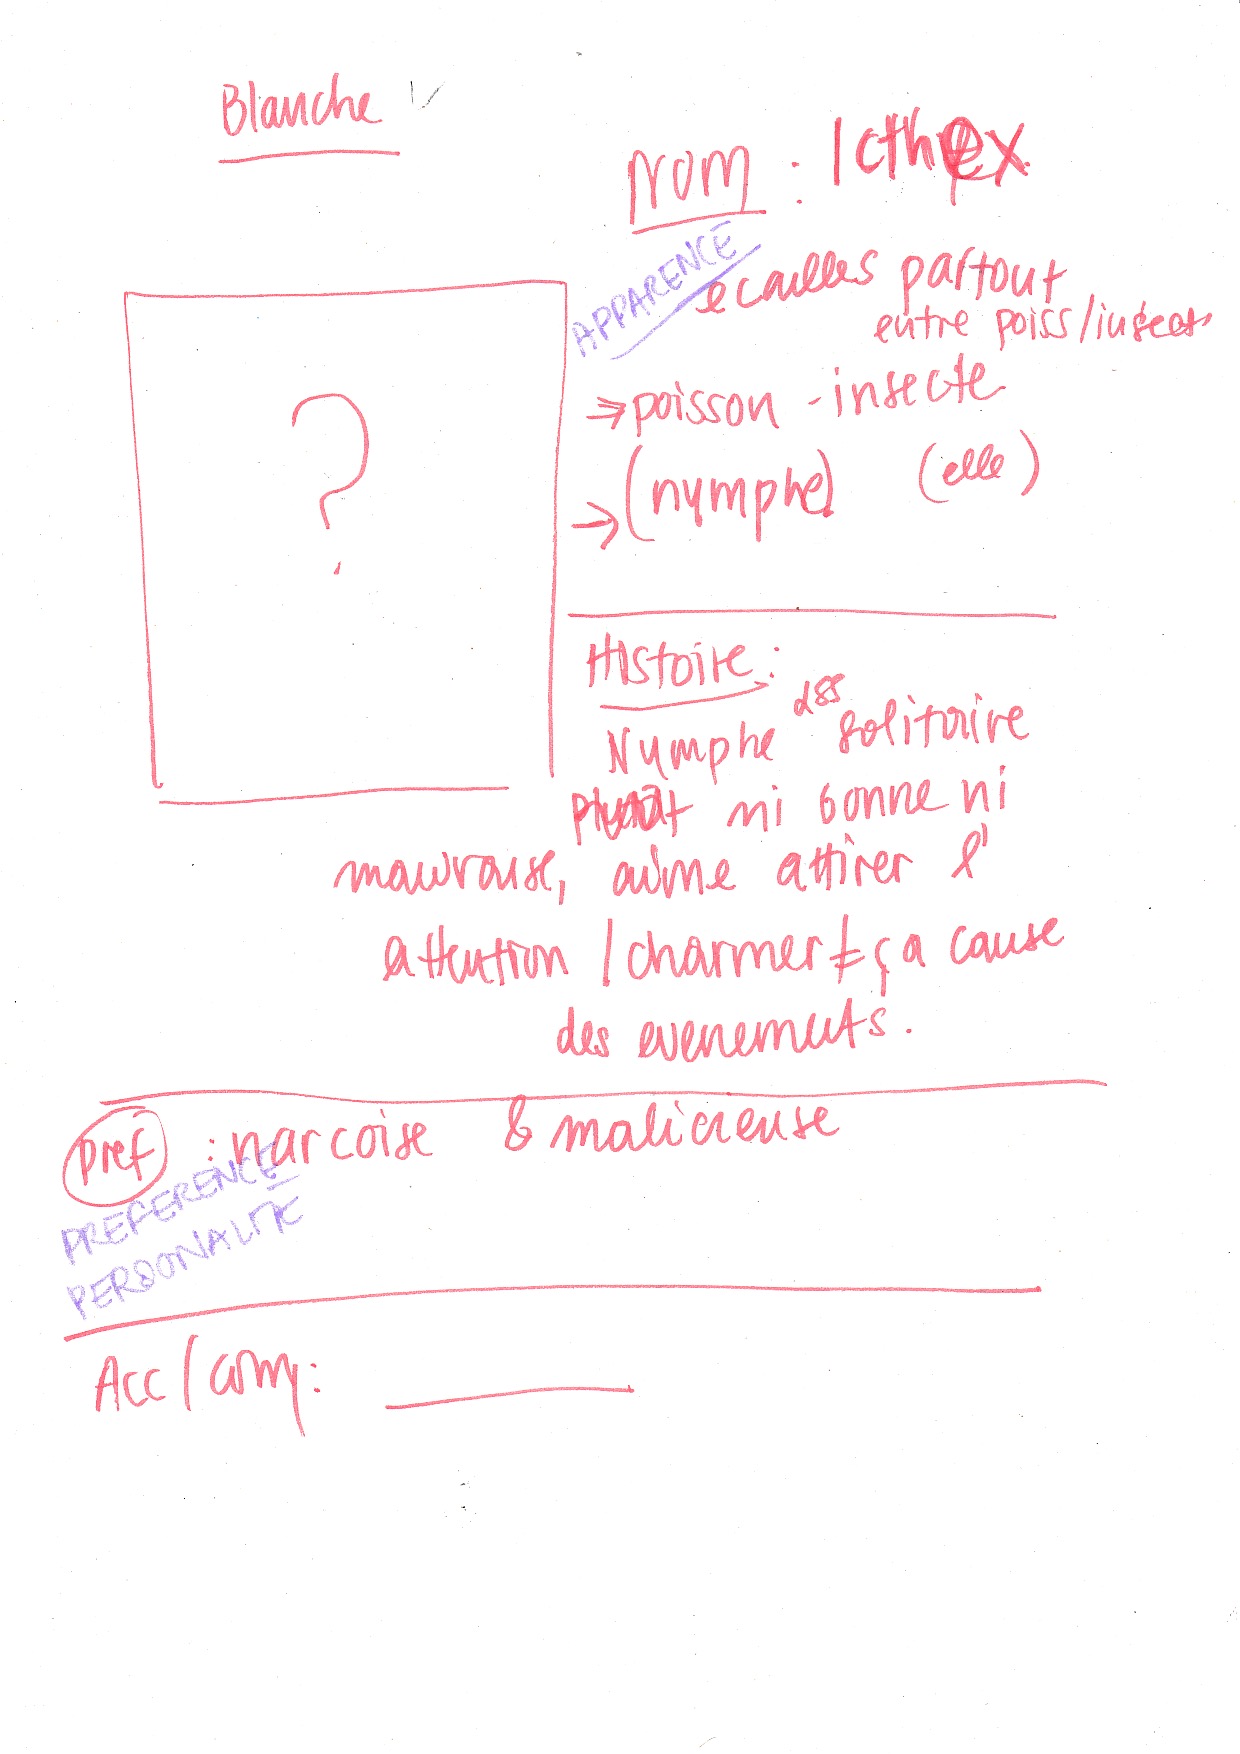 Blanche
Nom : Icthyex
APPARENCE
ecailles partout
entre poiss/insecte
⇒ poisson - insecte
→ (nymphe) (elle)
?
Histoire :
Nymphe solitaire
plutôt ni bonne ni
mauvaise, aime attirer l'
attention / charmer ≠ ça cause
des evenements.
pref : narcoise & malicieuse
PREFERENCE
PERSONALITE
Acc / arm :